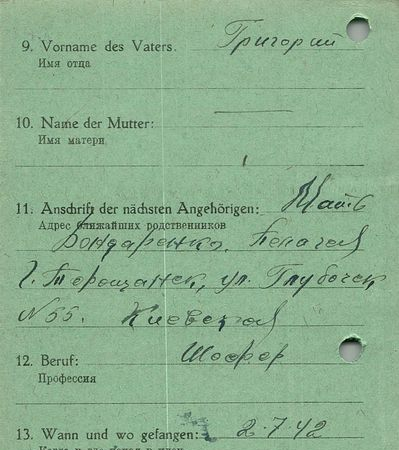 9. Vorname des Vaters: Григорий
Имя отца
10. Name der Mutter: —
Имя матери
11. Anschrift der nächsten Angehörigen: Мать
Адрес ближайших родственников
Бондаренко
г. Таращанск, ул. Глубочек
N 55. Киевская
12. Beruf: Шофер
Профессия
13. Wann und wo gefangen: 2.7.42